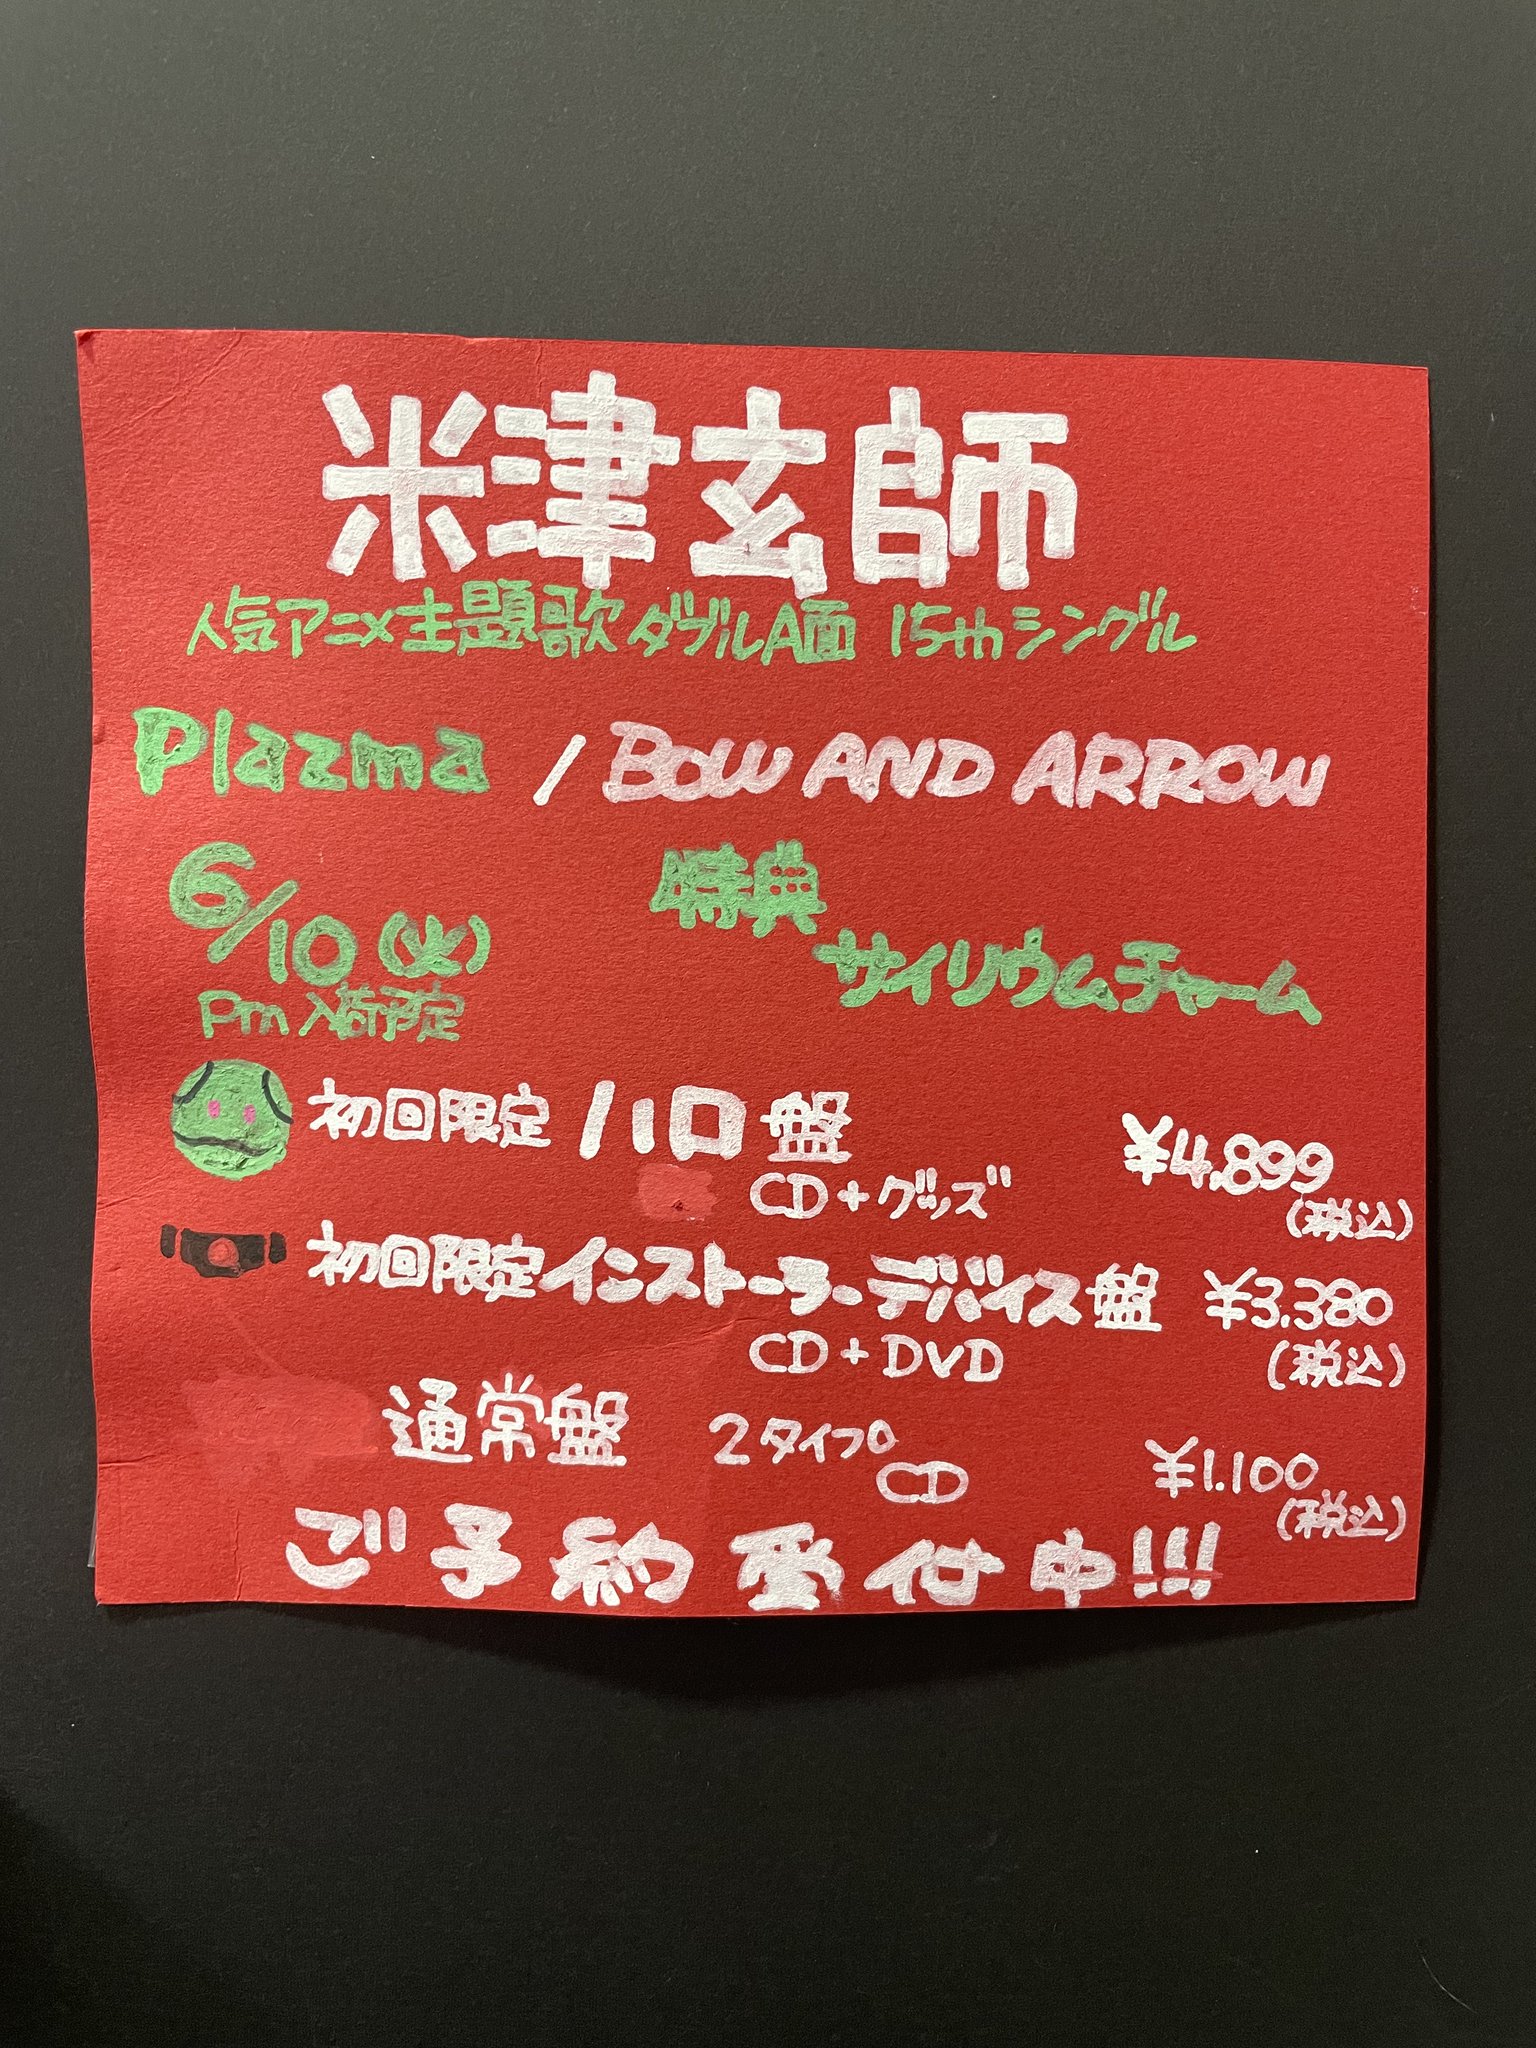 米津玄師
人気アニメ主題歌ダブルA面 15thシングル
Plazma / BOW AND ARROW
6/10(火)
Pm入荷予定
特典
サイリウムチャーム
初回限定 ハロ盤 ¥4,899
CD+グッズ (税込)
初回限定インストーラーデバイス盤 ¥3,380
CD+DVD (税込)
通常盤 2タイプ ¥1,100
CD (税込)
ご予約受付中!!!